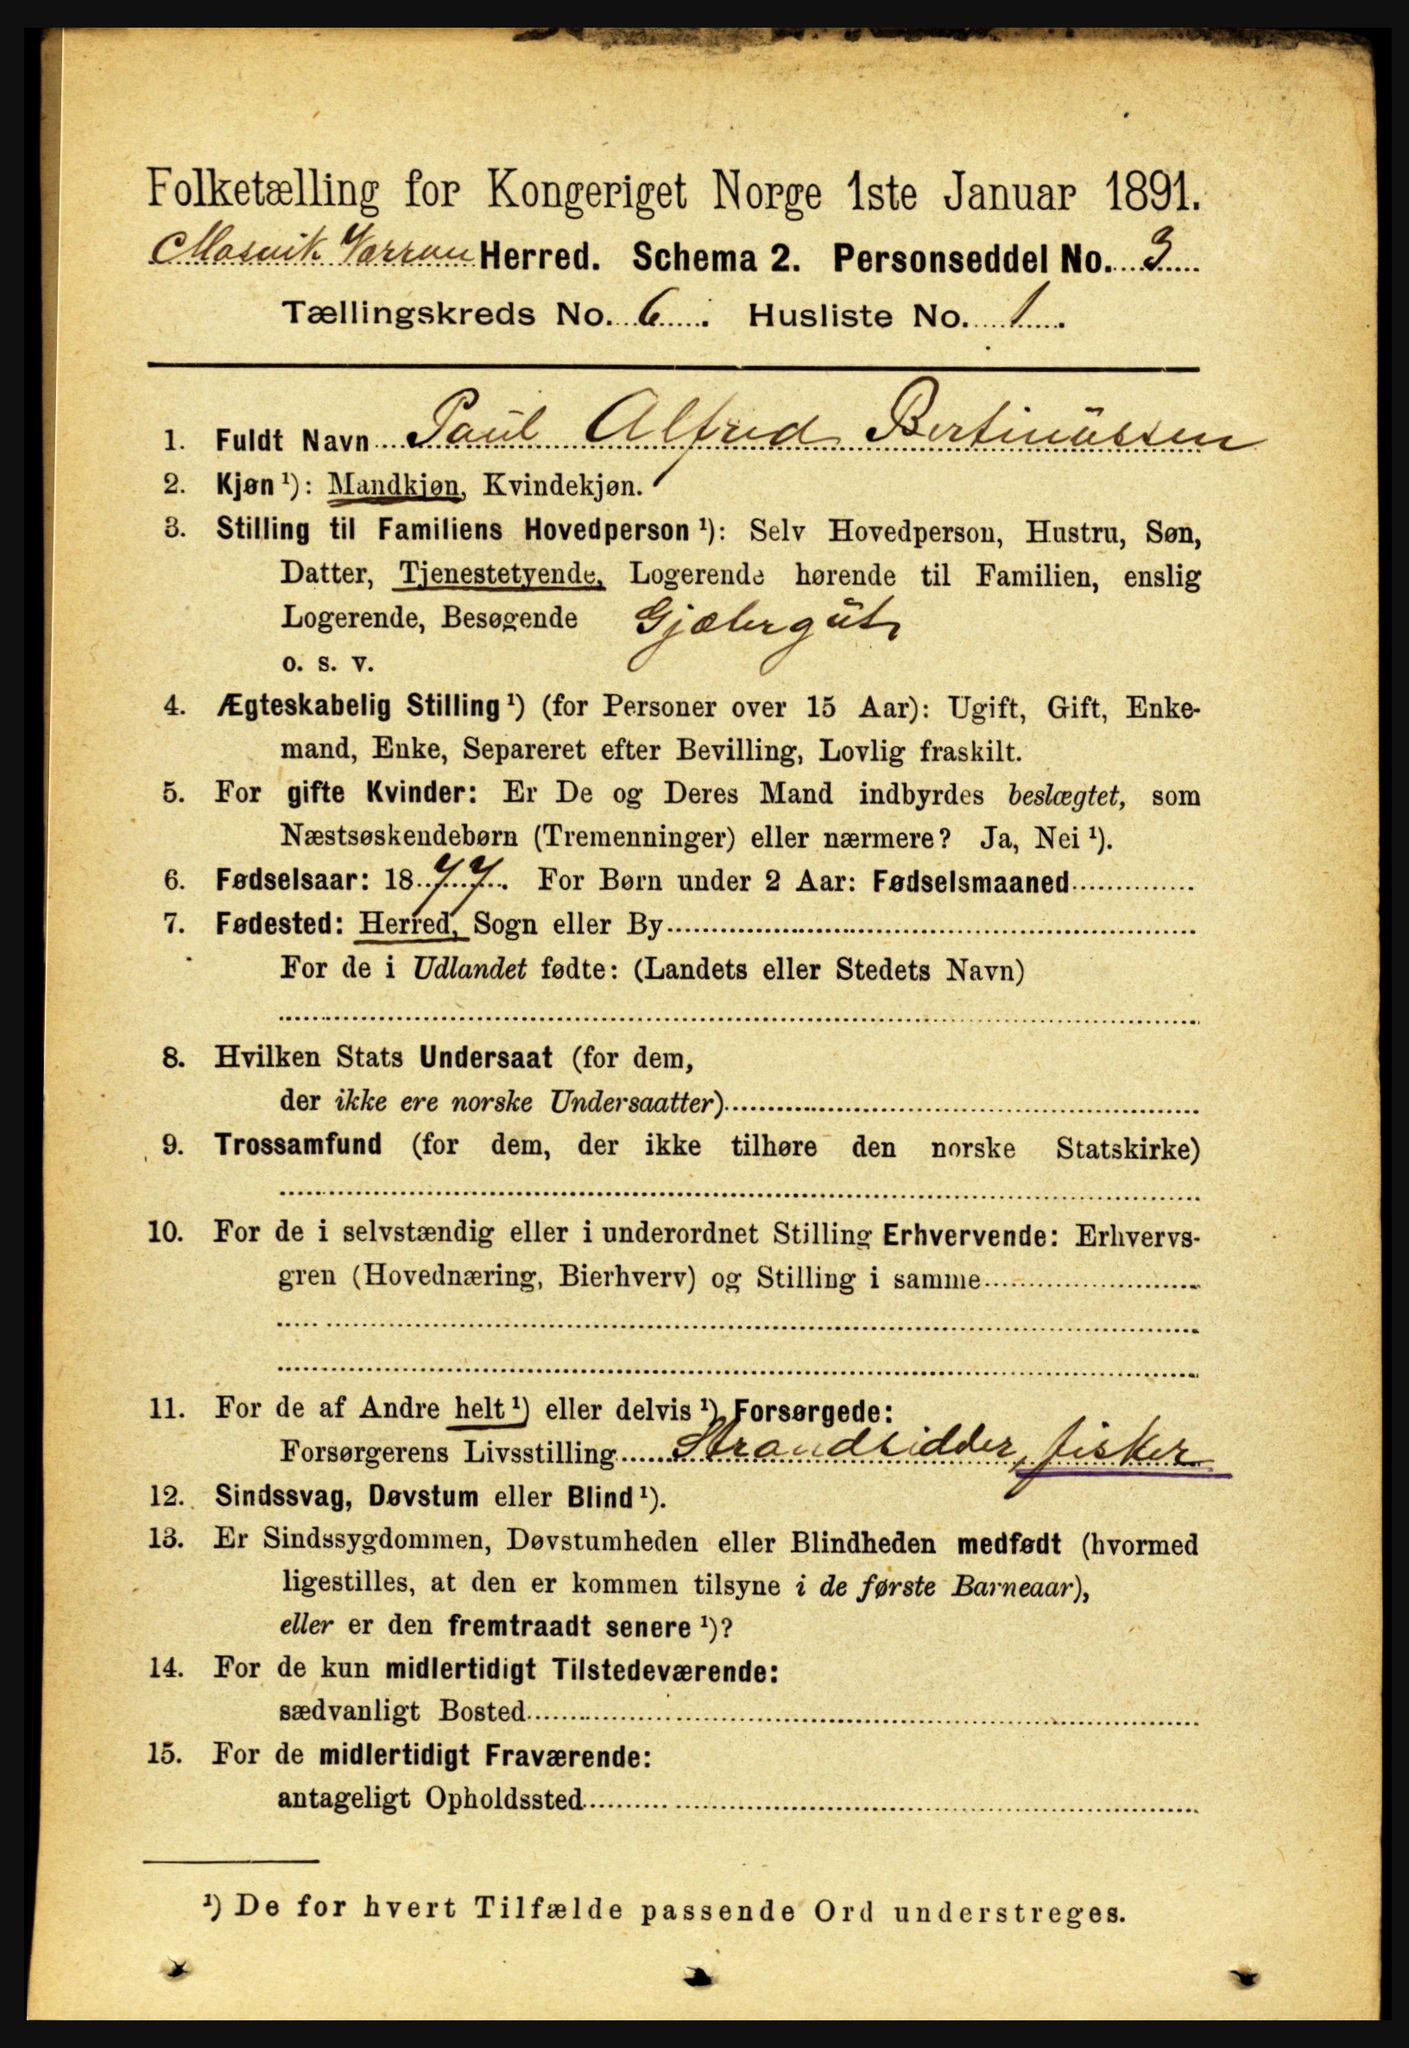 Folketælling for Kongeriget Norge 1ste Januar 1891.
Mosvik Verran Herred. Schema 2. Personseddel No. 3
Tællingskreds No. 6. Husliste No. 1.
1. Fuldt Navn Paul Alfred Bertinussen
2. Kjøn ¹): Mandkjøn, Kvindekjøn.
3. Stilling til Familiens Hovedperson ¹): Selv Hovedperson, Hustru, Søn,
Datter, Tjenestetyende, Logerende hørende til Familien, enslig
Logerende, Besøgende Gjætergut
o. s. v.
4. Ægteskabelig Stilling ¹) (for Personer over 15 Aar): Ugift, Gift, Enke-
mand, Enke, Separeret efter Bevilling, Lovlig fraskilt.
5. For gifte Kvinder: Er De og Deres Mand indbyrdes beslægtet, som
Næstsøskendebørn (Tremenninger) eller nærmere? Ja, Nei ¹).
6. Fødselsaar: 1877. For Børn under 2 Aar: Fødselsmaaned
7. Fødested: Herred, Sogn eller By
For de i Udlandet fødte: (Landets eller Stedets Navn)
8. Hvilken Stats Undersaat (for dem,
der ikke ere norske Undersaatter)
9. Trossamfund (for dem, der ikke tilhøre den norske Statskirke)
10. For de i selvstændig eller i underordnet Stilling Erhvervende: Erhvervs-
gren (Hovednæring, Bierhverv) og Stilling i samme
11. For de af Andre helt ¹) eller delvis ¹) Forsørgede:
Forsørgerens Livsstilling Strandsidder, fisker
12. Sindssvag, Døvstum eller Blind ¹).
13. Er Sindssygdommen, Døvstumheden eller Blindheden medfødt (hvormed
ligestilles, at den er kommen tilsyne i de første Barneaar),
eller er den fremtraadt senere ¹)?
14. For de kun midlertidigt Tilstedeværende:
sædvanligt Bosted
15. For de midlertidigt Fraværende:
antageligt Opholdssted
¹) De for hvert Tilfælde passende Ord understreges.